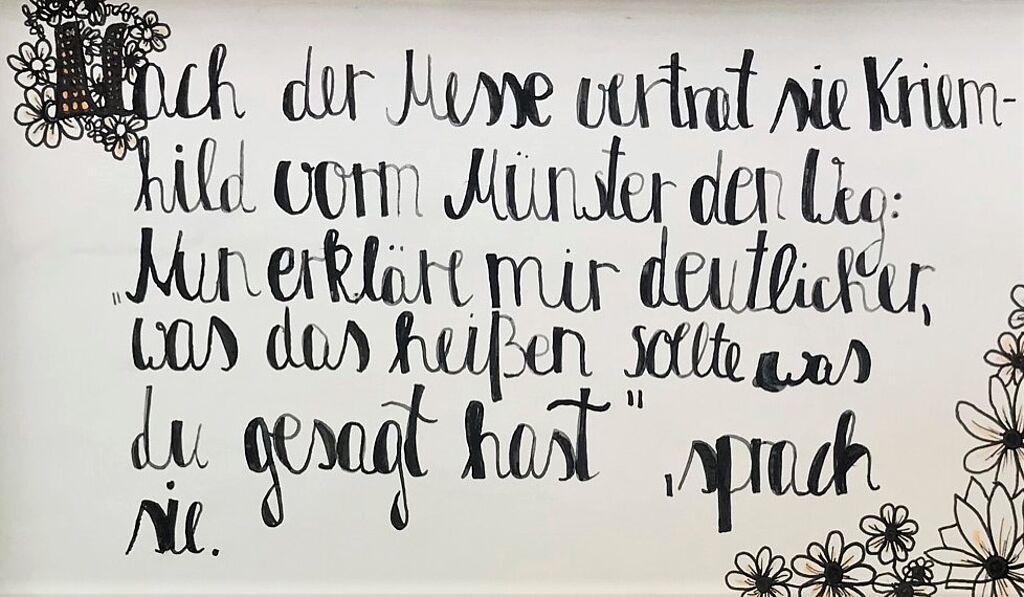 Nach der Messe vertrat sie Kriem-
hild vorm Münster den Weg:
„Nun erkläre mir deutlicher,
was das heißen sollte was
du gesagt hast" , sprach
sie.